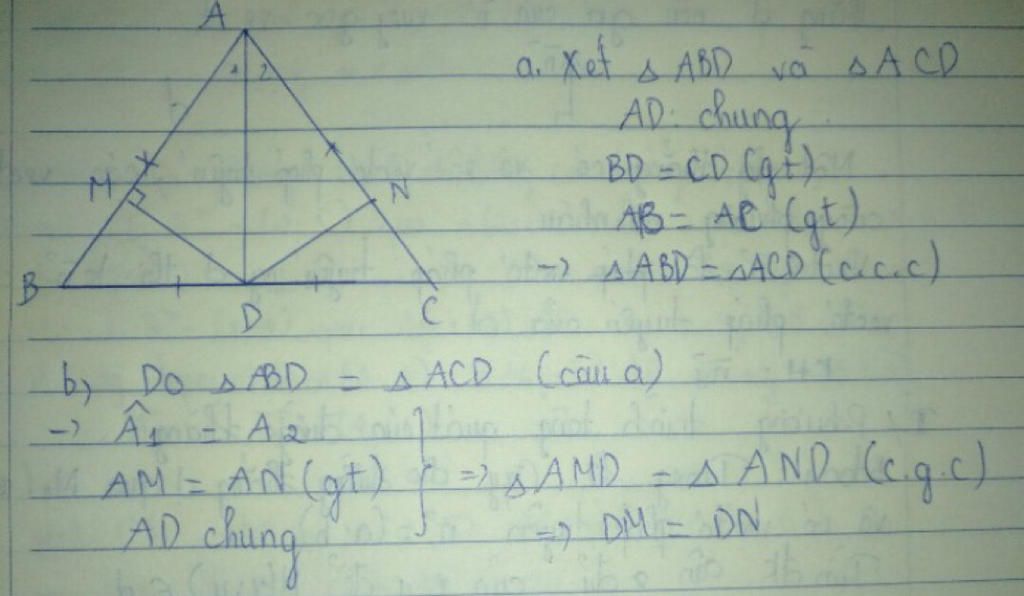 A
1 2
M
N
B
D
C
a. Xét △ ABD và △ ACD
AD: chung
BD = CD (gt)
AB = AC (gt)
→ △ ABD = △ACD (c.c.c)
b, Do △ ABD = △ ACD (câu a)
→ Â1 = A2
AM = AN (gt) } => △ AMD = △ AND (c.g.c)
AD chung => DM = DN